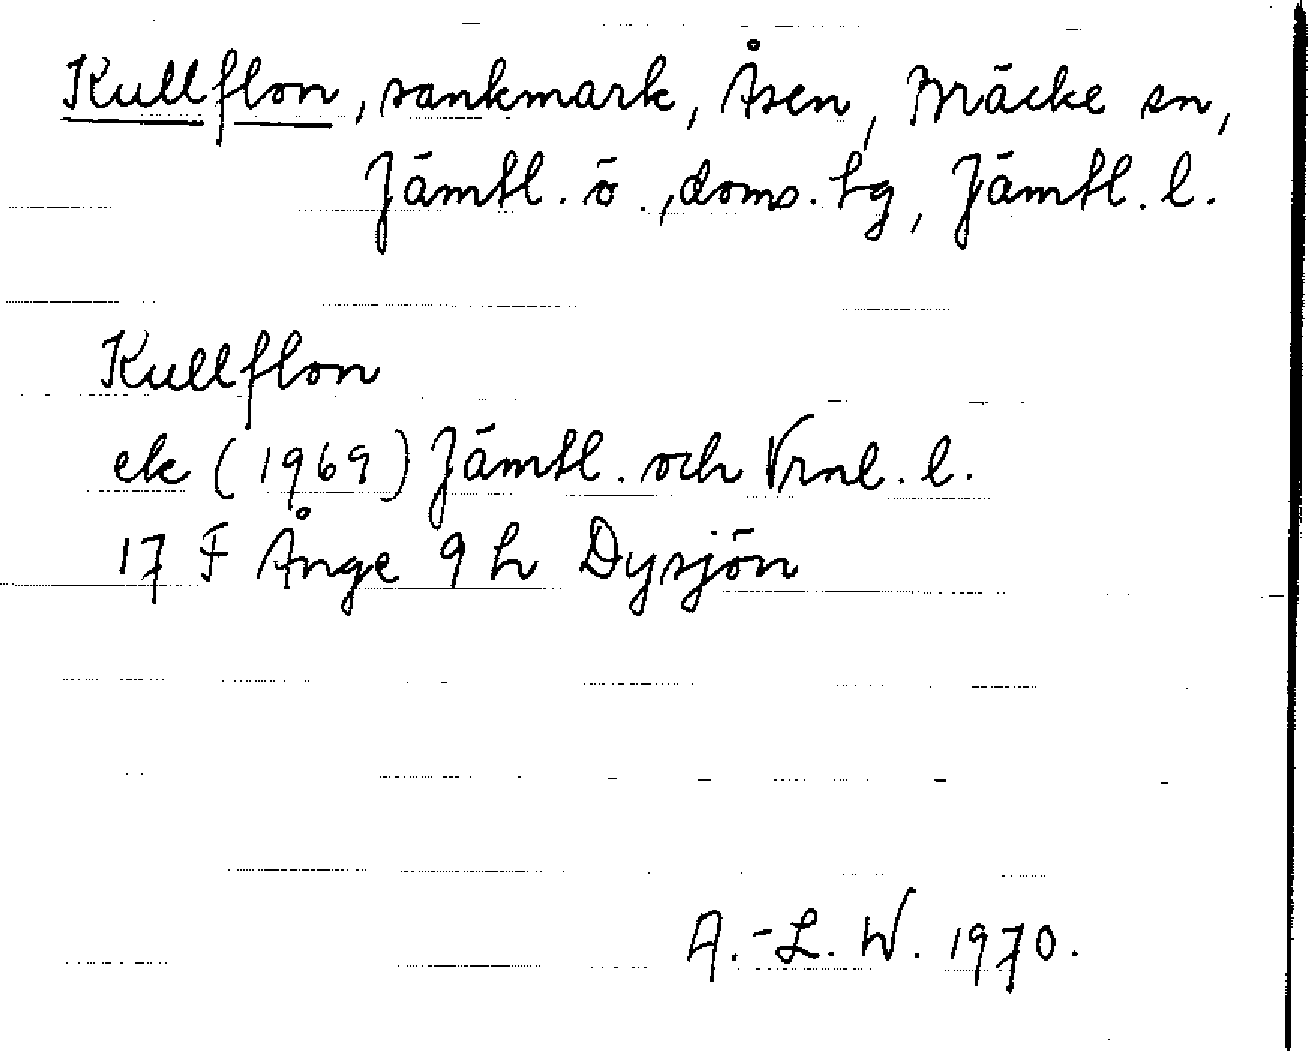 Kullflon, sankmark, Åsen, Bräcke sn,
Jämtl. ö., doms. hg, Jämtl. l.
Kullflon
ek (1969) Jämtl. och Vrnl. l.
17 F Ånge 9 h Dysjön
A.-L. W. 1970.